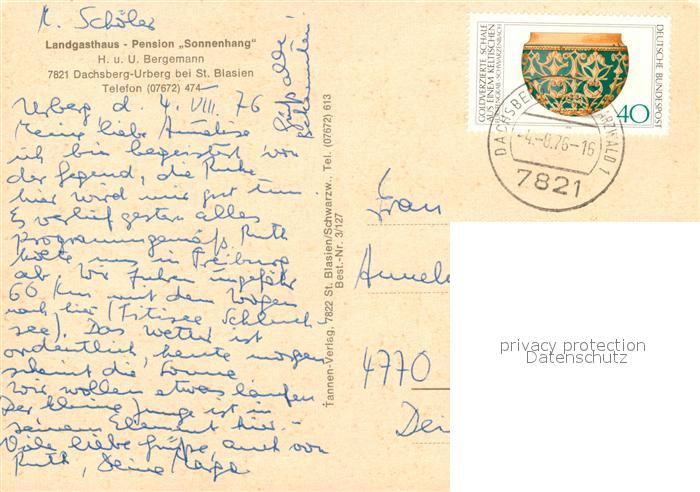 K. Schöler
Landgasthaus - Pension „Sonnenhang“
H. u. U. Bergemann
7821 Dachsberg-Urberg bei St. Blasien
Telefon (07672) 474
Urberg d. 4. VIII. 76
Meine liebe Annelise
ich bin begeistert von
der Gegend, die Ruhe
hier wird mir gut tun.
Es verlief gestern alles
programmgemäß. Ruth
holte uns in Freiburg
ab. Wir fuhren ungefähr
60 Km mit dem Wagen
nach hier (Titisee Schluch-
see). Das Wetter ist
ordentlich, heute morgen
scheint die Sonne
Wir wollen etwas laufen
Der kleine Junge ist in
seinem Element hier. -
Viele liebe Grüße, auch von
Ruth, Deine Marga
Grüß alle
Bekannten
Tannen-Verlag, 7822 St. Blasien/Schwarzw., Tel. (07672) 613
Best.-Nr. 3/127
GOLDVERZIERTE SCHALE
AUS EINEM KELTISCHEN
FÜRSTENGRAB · SCHWARZENBACH
DEUTSCHE BUNDESPOST
40
DACHSBE
ARZWALD 1
-4.-8.76-16
7821
Frau
Annel
4770
Dei
privacy protection
Datenschutz